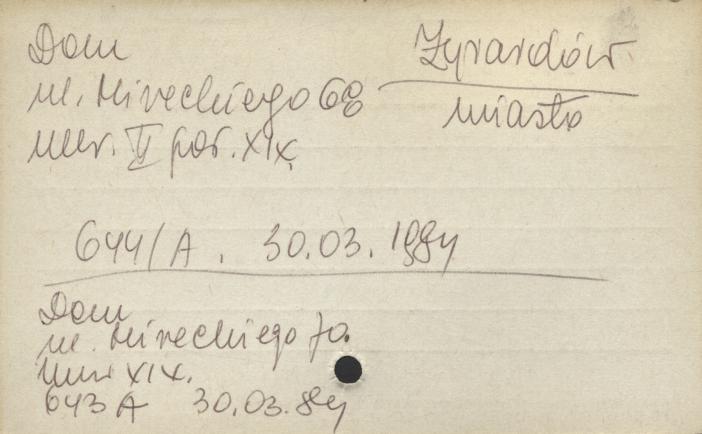 Dom
ul. Mireckiego 68
mur. II poł. XIX
Żyrardów
miasto
644/A. 30.03.1984
Dom
ul. Mireckiego 70.
mur XIX.
643 A 30.03.84